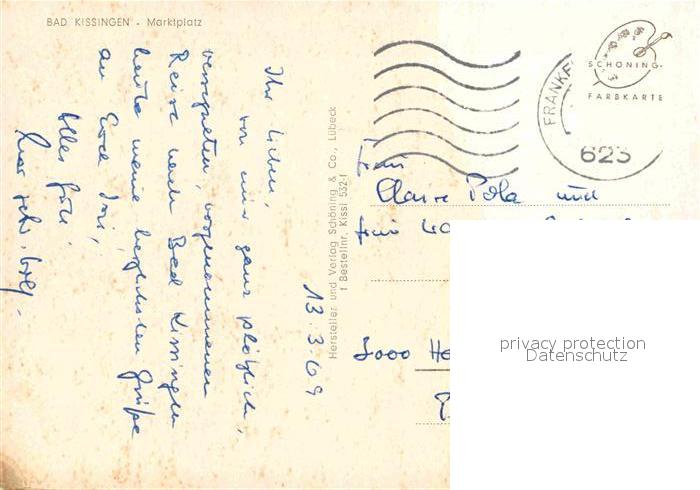 BAD KISSINGEN - Marktplatz
13.3.69
Ihr Lieben,
von mir ganz plötzlich,
verregneten, vorgenommenen
Reise nach Bad Kissingen
heute meine herzlichsten Grüße
an Euch drei,
Alles Gute
Hersteller und Verlag Schöning & Co., Lübeck
Bestellnr. Kissi 532
SCHÖNING
FARBKARTE
FRANKF
623
Frau
Claire Pola und
Frau
3000 Ha
privacy protection
Datenschutz